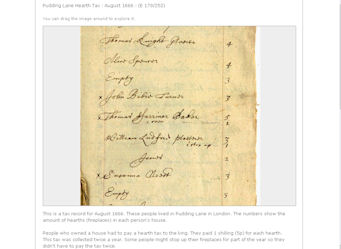 Pudding Lane Hearth Tax - August 1666 - (E 179/252)
You can drag the image around to explore it.
Thomas Knight Glasier 4
Alice Spencer 4
Empty 3
x John Bibie Turner 3
x Thomas Farrinor Baker 5
1 oven 1
x William Ludford plasterer 3
stopt up 1
Jones 2
x Susanna Noest 2
Empty 3
This is a tax record for August 1666. These people lived in Pudding Lane in London. The numbers show the
amount of hearths (fireplaces) in each person's house.
People who owned a house had to pay a hearth tax to the king. They paid 1 shilling (5p) for each hearth.
This tax was collected twice a year. Some people might stop up their fireplaces for part of the year so they
didn't have to pay the tax twice.